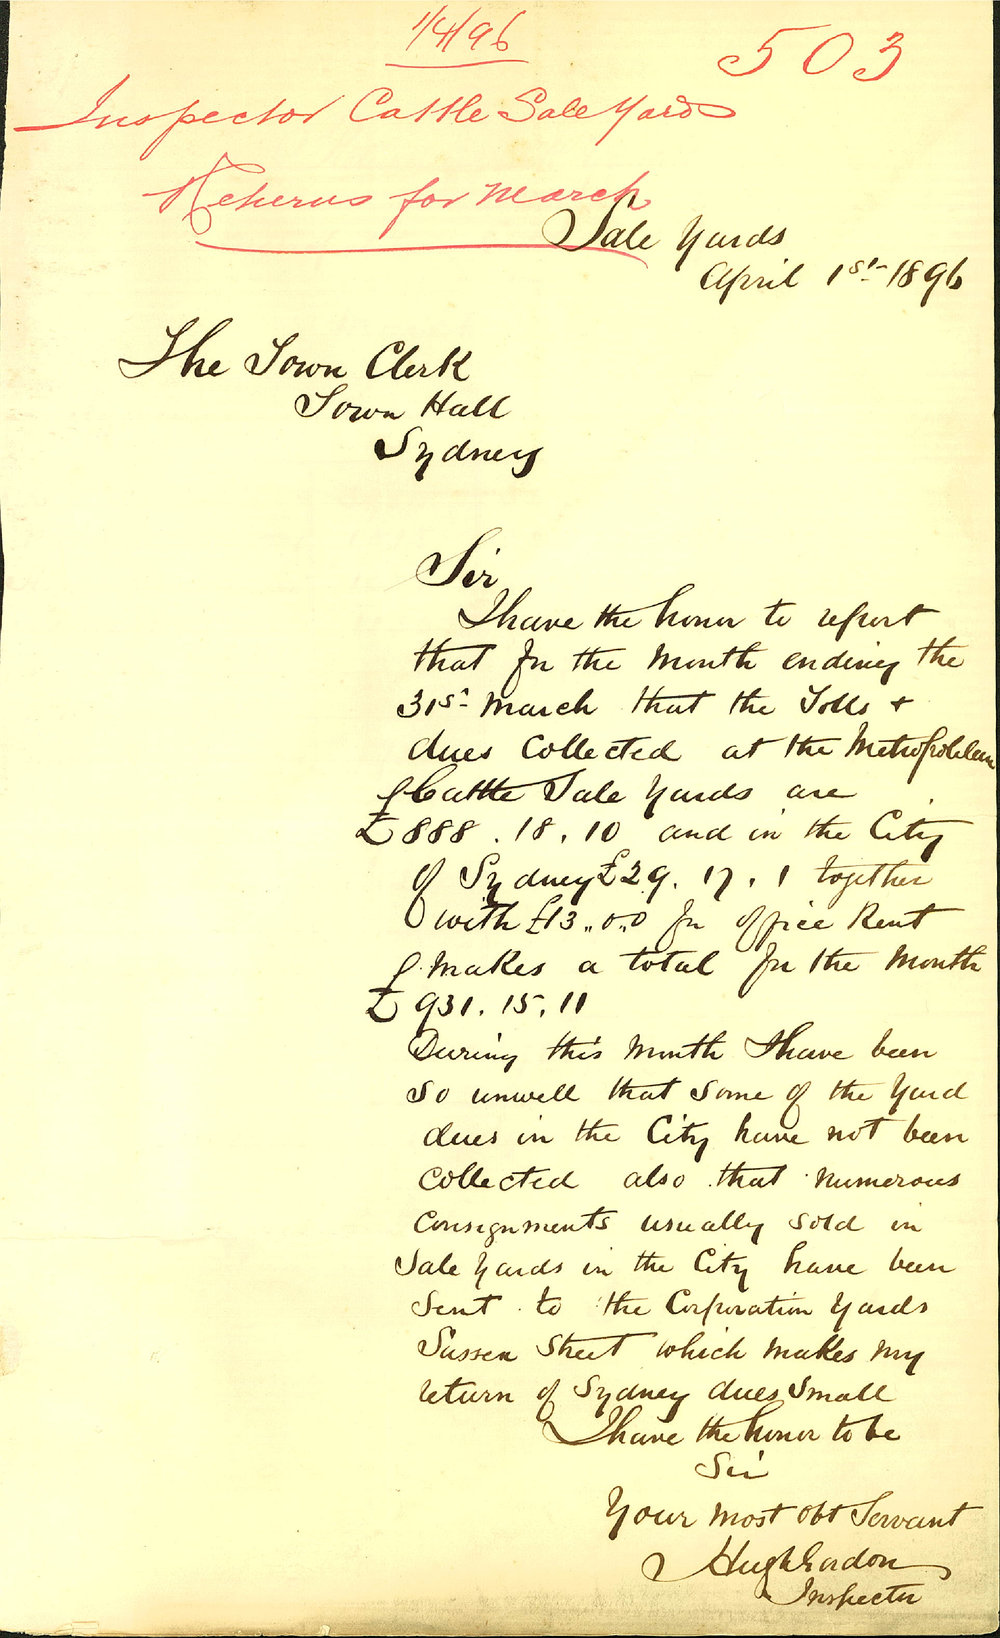 1/4/96
503
Inspector Cattle Sale Yards
Returns for March
Sale Yards
April 1st 1896
The Town Clerk
Town Hall
Sydney
Sir
I have the honor to report
that for the Month ending the
31st March that the Tolls +
dues Collected at the Metropolitan
Cattle Sale Yards are
£888.18.10 and in the City
of Sydney £29.17.1 together
with £13..0..0 for office Rent
makes a total for the Month
£931.15.11
During this Month I have been
so unwell that some of the Yard
dues in the City have not been
Collected also that numerous
Consignments usually sold in
Sale Yards in the City have been
sent to the Corporation Yards
Sussex Street which makes my
return of Sydney dues small
I have the honor to be
Sir
Your most obt Servant
Hugh Gordon
Inspector